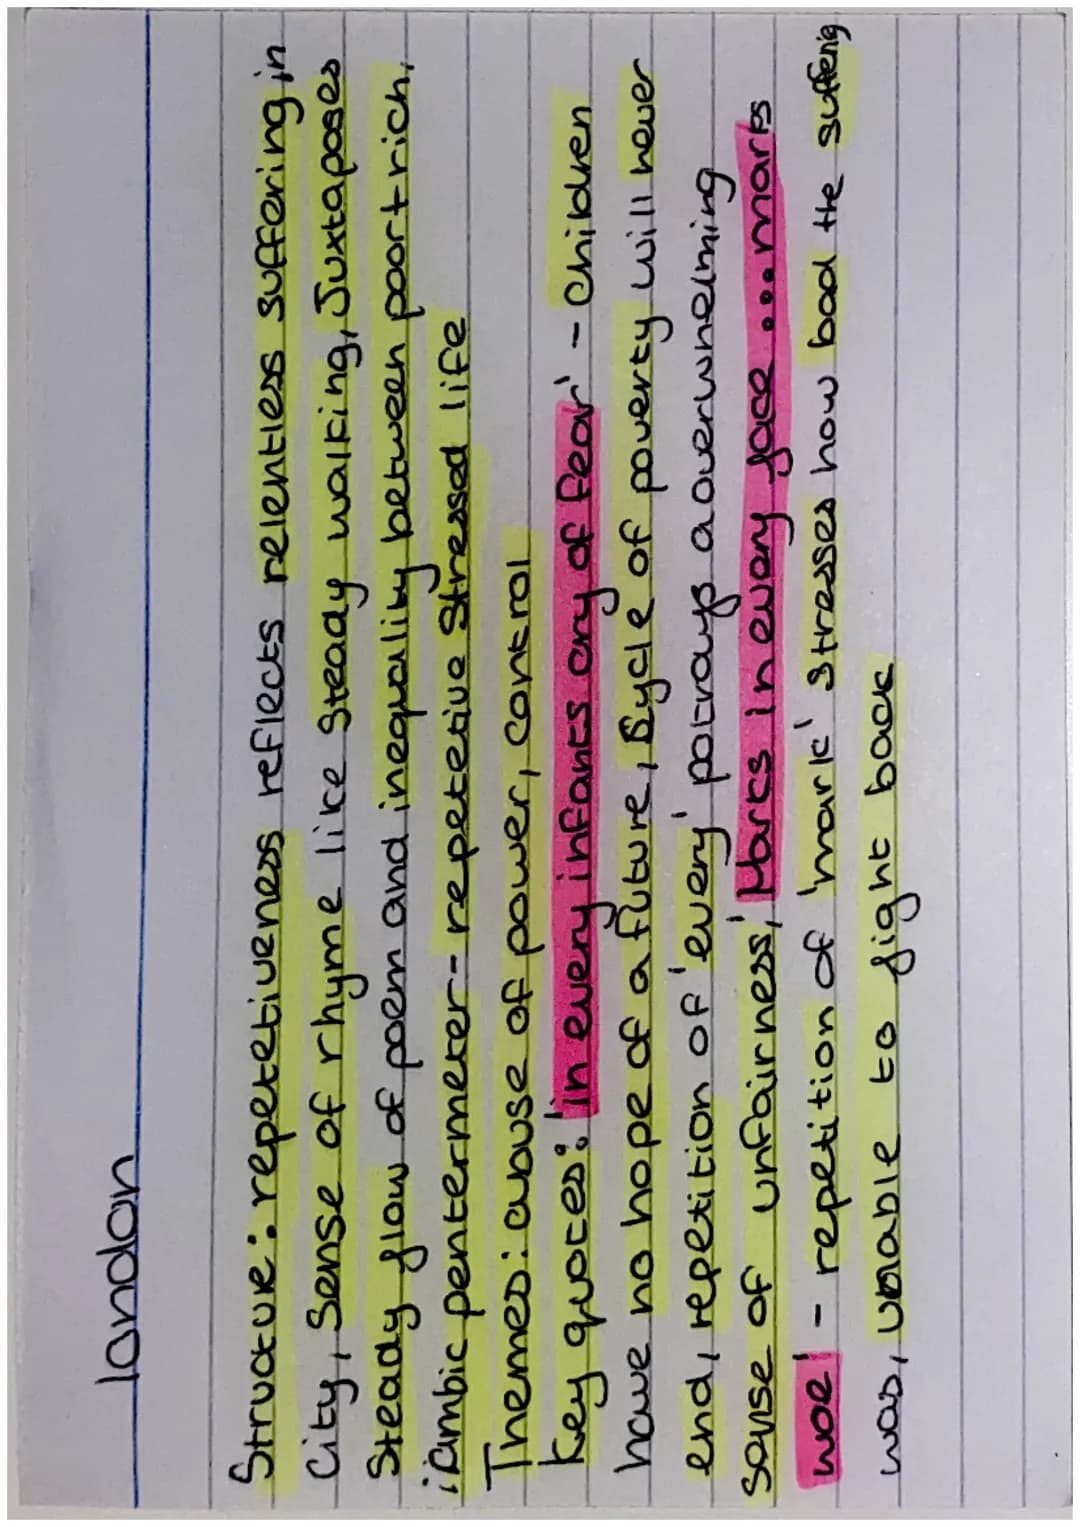 london
Structure: repetetiveness reflects relentless suffering in
City, Sense of rhyme like steady walking, Juxtaposes
Steady flow of poem and inequality between poor + rich,
iambic pentermeter - repetetive stressed life
Themes: abuse of power, control
key quotes: 'in every infants cry of fear' - children
have no hope of a future, cycle of poverty will never
end, repetition of 'every' potrays a overwhelming
sense of unfairness, 'Marks in every face... marks
woe' - repetition of 'mark' stresses how bad the suffering
was, unable to fight back